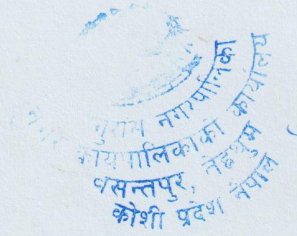 नगरपालिका
कार्यपालिकाको कार्यालय
वसन्तपुर, तेह्रथुम
कोशी प्रदेश नेपाल